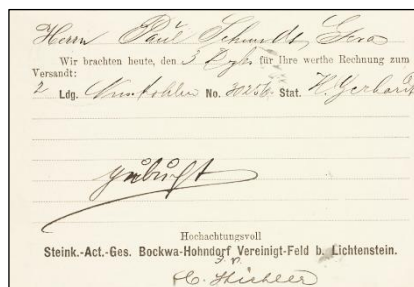 Herrn Paul Schmidt, Gera
Wir brachten heute, den 3 Dzbr für Ihre werthe Rechnung zum
Versandt:
2 Ldg. No. 30256 Stat. Gerhardt
gebucht
Hochachtungsvoll
Steink.-Act.-Ges. Bockwa-Hohndorf Vereinigt-Feld b. Lichtenstein.